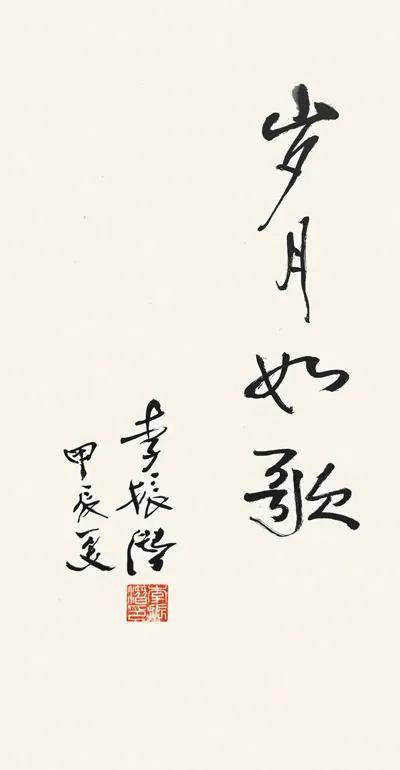 岁月如歌
李振潜
甲辰夏